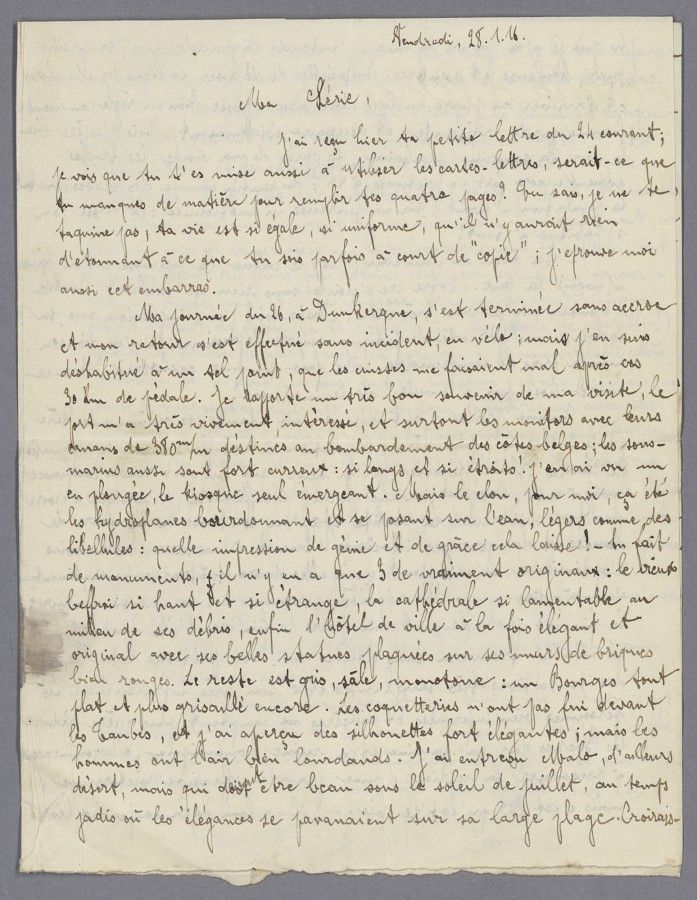 Vendredi, 28.1.16.
Ma Lérie,
j'ai reçu hier ta petite lettre du 24 courant;
je vois que tu t'es mise aussi à utiliser les cartes-lettres, serait-ce que
tu manques de matière pour remplir tes quatre pages? Tu sais, je ne te
taquine pas, ta vie est si égale, si uniforme, qu'il n'y aurait rien
d'étonnant à ce que tu sois parfois à court de "copie"; j'éprouve moi
aussi cet embarras.
Ma journée du 26, à Dunkerque, s'est terminée sans accroc
et mon retour s'est effectué sans incident, en vélo; mais j'en suis
déshabitué à un tel point, que les cuisses me faisaient mal après ces
30 km de pédale. Je rapporte un très bon souvenir de ma visite, le
port m'a très vivement intéressé, et surtout les monitors avec leurs
canons de 380 m/m destinés au bombardement des côtes belges; les sous-
marins aussi sont fort curieux: si longs et si étroits! j'en ai vu un
en plongée, le kiosque seul émergeant. Mais le clou, pour moi, ça été
les hydroplanes bourdonnant et se posant sur l'eau, légers comme des
libellules: quelle impression de génie et de grâce cela laisse! - En fait
de monuments, il n'y en a que 3 de vraiment originaux: le vieux
beffroi si haut et si étrange, la cathédrale si lamentable au
milieu de ses débris, enfin l'hôtel de ville à la fois élégant et
original avec ses belles statues plaquées sur ses murs de briques
bien rouges. Le reste est gris, sale, monotone: un Bourges tout
plat et plus grisaillé encore. Les coquetteries n'ont pas fui devant
les Taubes, et j'ai aperçu des silhouettes fort élégantes; mais les
hommes ont l'air bien lourdauds. J'ai entrevu Malo, d'ailleurs
désert, mais qui doit être beau sous le soleil de juillet, au temps
jadis où les élégances se pavanaient sur sa large plage. Croirais-